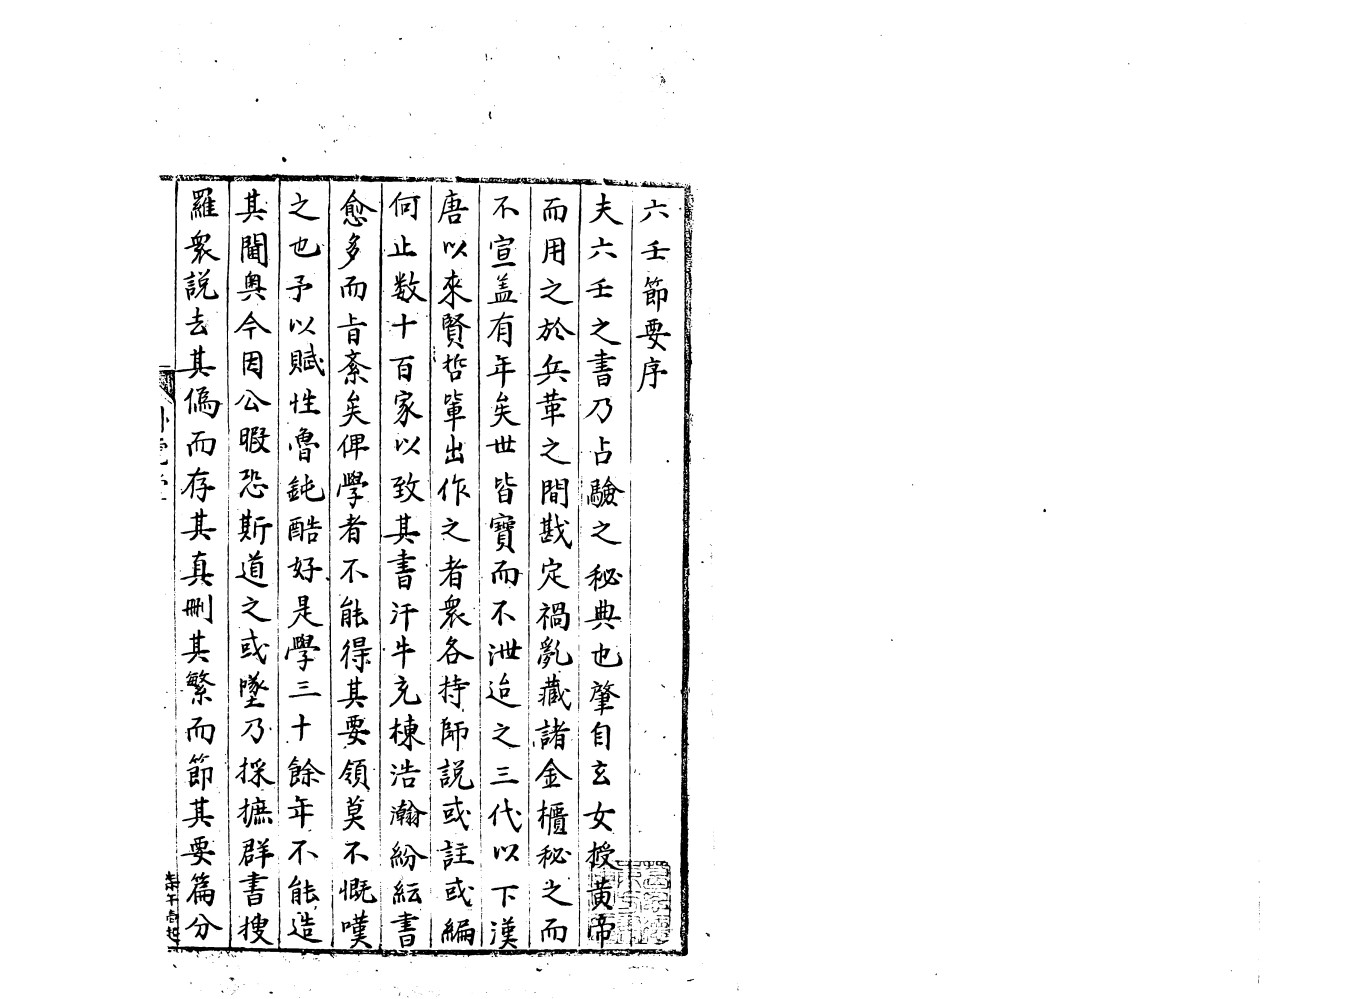 六壬節要序
夫六壬之書乃占驗之秘典也肇自玄女授黄帝
而用之於兵革之間戡定禍亂藏諸金櫃秘之而
不宣盖有年矣世皆寶而不泄迨之三代以下漢
唐以來賢哲輩出作之者衆各持師説或註或編
何止数十百家以致其書汗牛充棟浩瀚紛紜書
愈多而旨紊矣俾學者不能得其要領莫不慨嘆
之也予以賦性魯鈍酷好是學三十餘年不能造
其閫奥今因公暇恐斯道之或墜乃採摭群書搜
羅衆説去其偽而存其真刪其繁而節其要篇分